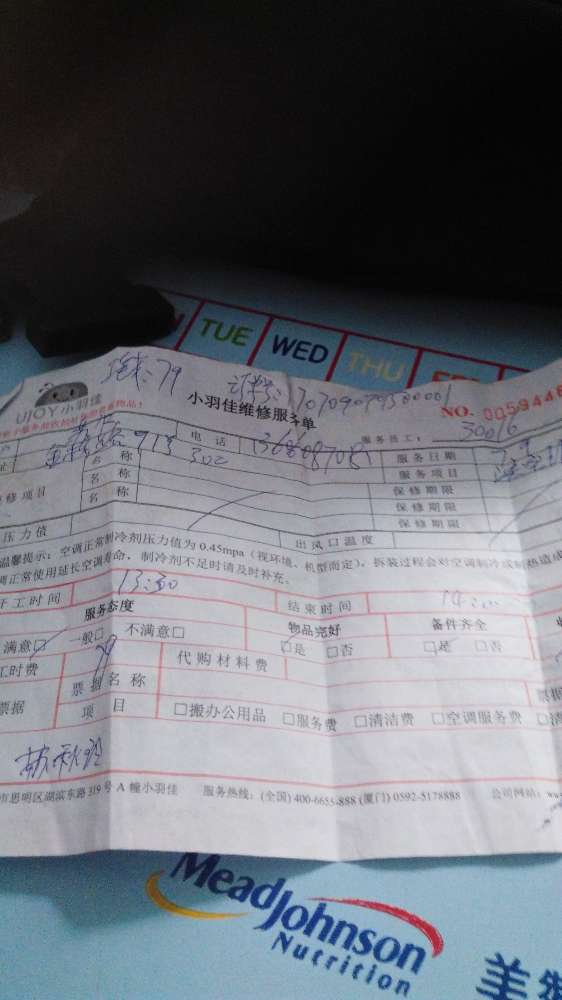 TUE WED THU
UJOY小羽佳
小羽佳维修服务单
NO. 0059448
服务员工: 30016
电话
服务日期 7.9
名称 302
服务项目
修项目
名称
保修期限
名称
保修期限
保修期限
压力值
出风口温度
温馨提示:空调正常制冷剂压力值为0.45mpa(视环境、机型而定),拆装过程会对空调制冷或制热造成
调正常使用延长空调寿命,制冷剂不足时请及时补充。
开工时间 13:00
结束时间 14:00
服务态度
物品完好
备件齐全
满意□ 一般□ 不满意□
□是 □否
□是 □否
工时费 79
代购材料费
票据
票据名称
项目
□搬办公用品 □服务费 □清洁费 □空调服务费
市思明区湖滨东路319号A幢小羽佳 服务热线:(全国)400-6655-888 (厦门)0592-5178888 公司网站:
MeadJohnson
Nutrition
美